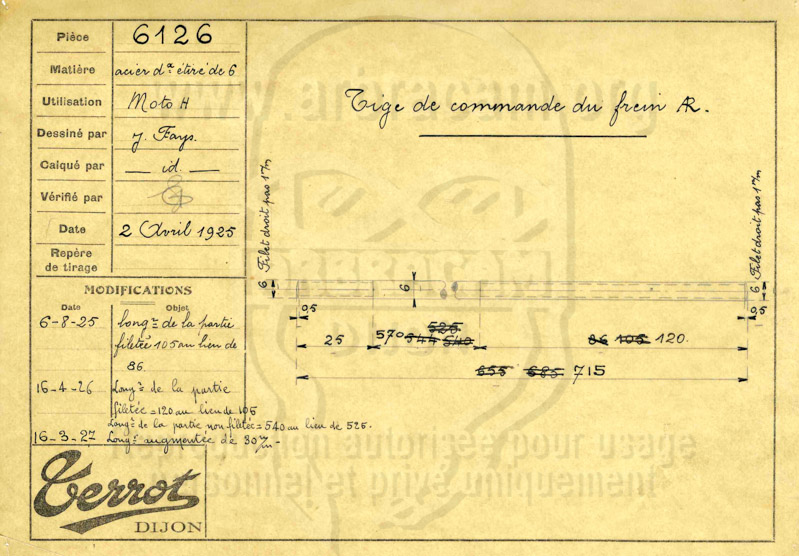 Pièce 6126
Matière acier dx étiré de 6
Utilisation Moto H
Dessiné par J. Fays.
Calqué par id.
Vérifié par
Date 2 Avril 1925
Repère
de tirage
MODIFICATIONS
Date Objet
6-8-25 longr de la partie
filetée 105 au lieu de
86.
16-4-26 Longr de la partie
filetée = 120 au lieu de 105
Longr de la partie non filetée = 540 au lieu de 525.
16-3-27 Longr augmentée de 30m/m
Terrot
DIJON
Tige de commande du frein AR.
6 Filet droit pas 1m/m
6
6 Filet droit pas 1m/m
0,5
0,5
25
570 544 525 540
86 105 120.
655 685 715
www.arbracam.org
ARBRACAM
Reproduction autorisée pour usage
personnel et privé uniquement